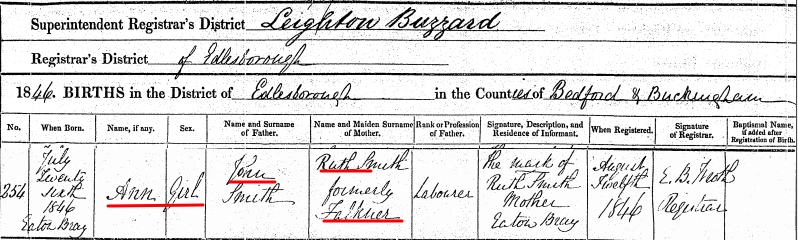 Superintendent Registrar's District Leighton Buzzard
Registrar's District of Edlesborough
1846. BIRTHS in the District of Edlesborough in the Counties of Bedford & Buckingham
No. When Born. Name, if any. Sex. Name and Surname of Father. Name and Maiden Surname of Mother. Rank or Profession of Father. Signature, Description, and Residence of Informant. When Registered. Signature of Registrar. Baptismal Name, if added after Registration of Birth.
254
July
Twenty
Sixth
1846
Eaton Bray
Ann
Girl
John
Smith
Ruth Smith
formerly
Falkner
Labourer
The mark of
Ruth Smith
Mother
Eaton Bray
August
Twelfth
1846
E. B.
Registrar